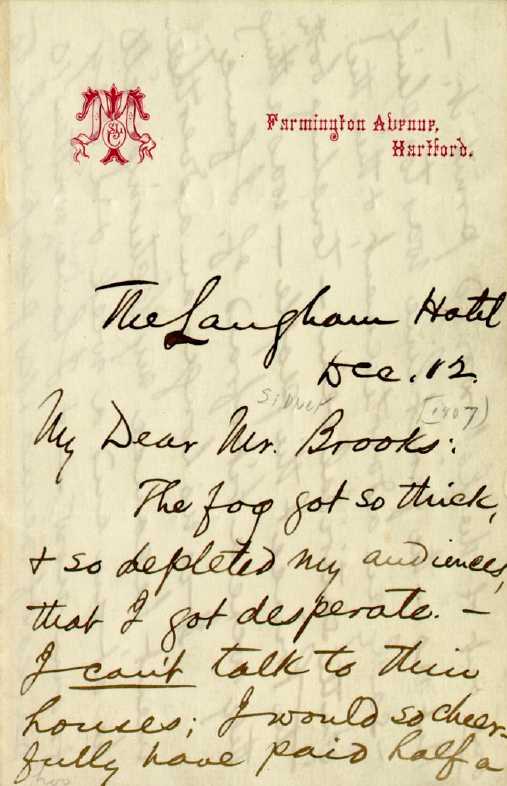 SLC
Farmington Avenue,
Hartford.
The Langham Hotel
Dec. 12.
Sidney
[1907)
My Dear Mr. Brooks:
The fog got so thick,
& so depleted my audiences,
that I got desperate. —
I can't talk to thin
houses; I would so cheer-
fully have paid half a